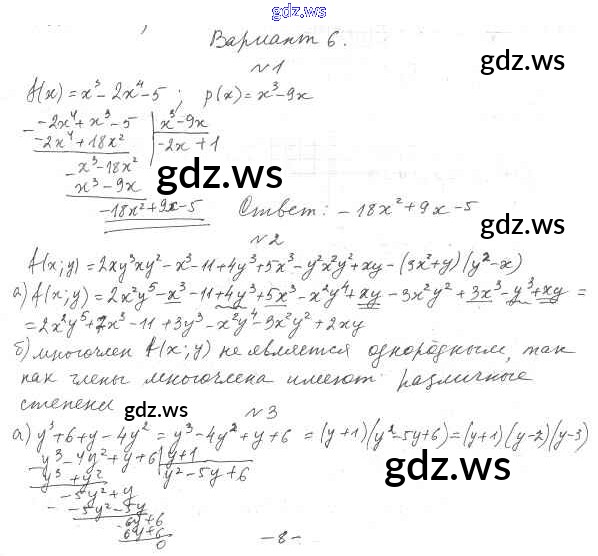 gdz.ws
Вариант 6.
gdz.ws
№1
f(x) = x³ - 2x⁴ - 5 ; p(x) = x³ - 9x
-2x⁴ + x³ - 5 | x³ - 9x
-2x⁴ + 18x² | -2x + 1
x³ - 18x²
x³ - 9x
gdz.ws
-18x² + 9x - 5
Ответ: -18x² + 9x - 5
gdz.ws
№2
f(x;y) = 2xy³xy² - x³ - 11 + 4y³ + 5x³ - y²x²y² + xy - (3x² + y)(y² - x)
а) f(x;y) = 2x²y⁵ - x³ - 11 + 4y³ + 5x³ - x²y⁴ + xy - 3x²y² + 3x³ - y³ + xy =
= 2x²y⁵ + 7x³ - 11 + 3y³ - x²y⁴ - 3x²y² + 2xy
б) многочлен f(x;y) не является однородным, так
как члены многочлена имеют различные
степени
gdz.ws
№3
а) y³ + 6 + y - 4y² = y³ - 4y² + y + 6 = (y+1)(y² - 5y + 6) = (y+1)(y-2)(y-3)
y³ - 4y² + y + 6 | y + 1
y³ + y² | y² - 5y + 6
gdz.ws
-5y² + y
-5y² - 5y
6y + 6
6y + 6
0
- 8 -
gdz.ws